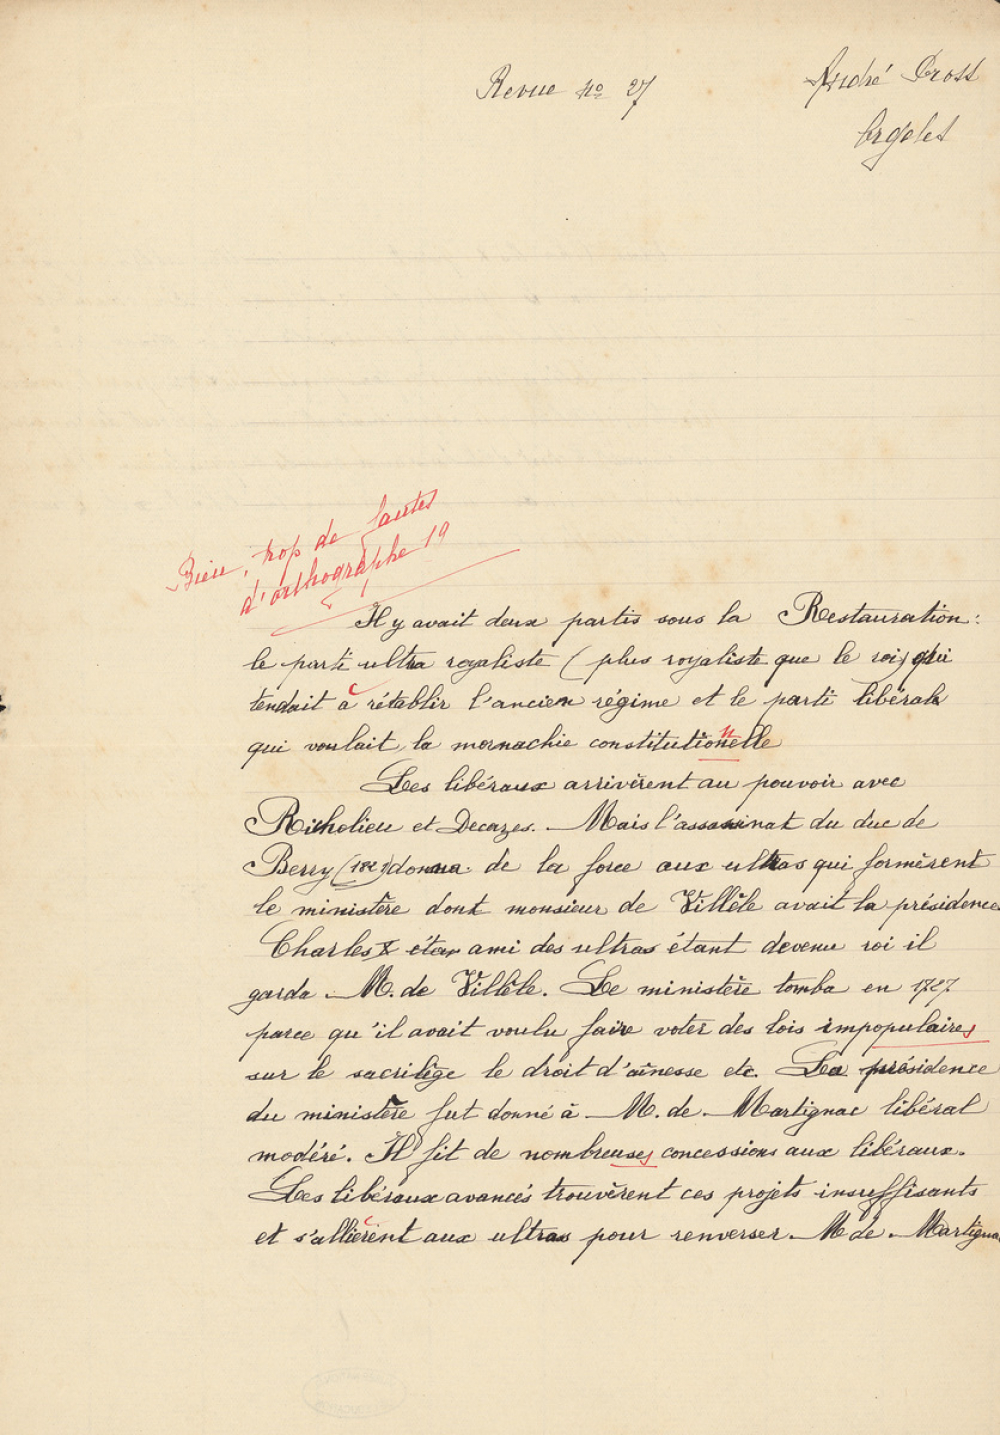 Revue no 27
André Cross
Argelet
Bien, trop de fautes
d'orthographe 19
Il y avait deux partis sous la Restauration:
le parti ultra royaliste (plus royaliste que le roi) qui
tendait à rétablir l'ancien régime et le parti libérale
qui voulait la mornachie constitutionnelle
Les libéraux arrivèrent au pouvoir avec
Richelieu et Decazes. Mais l'assassinat du duc de
Berry donna de la force aux ultras qui formèrent
le ministère dont monsieur de Villèle avait la présidence
Charles X étan ami des ultras étant devenu roi il
garda M. de Villèle. Le ministère tomba en 1827
parce qu'il avait voulu faire voter des lois impopulaires
sur le sacrilège le droit d'aînesse etc. La présidence
du ministère fut donné à M. de Martignac libéral
modéré. Il fit de nombreuses concessions aux libéraux.
Les libéraux avancés trouvèrent ces projets insuffisants
et s'allièrent aux ultras pour renverser M de Martignac